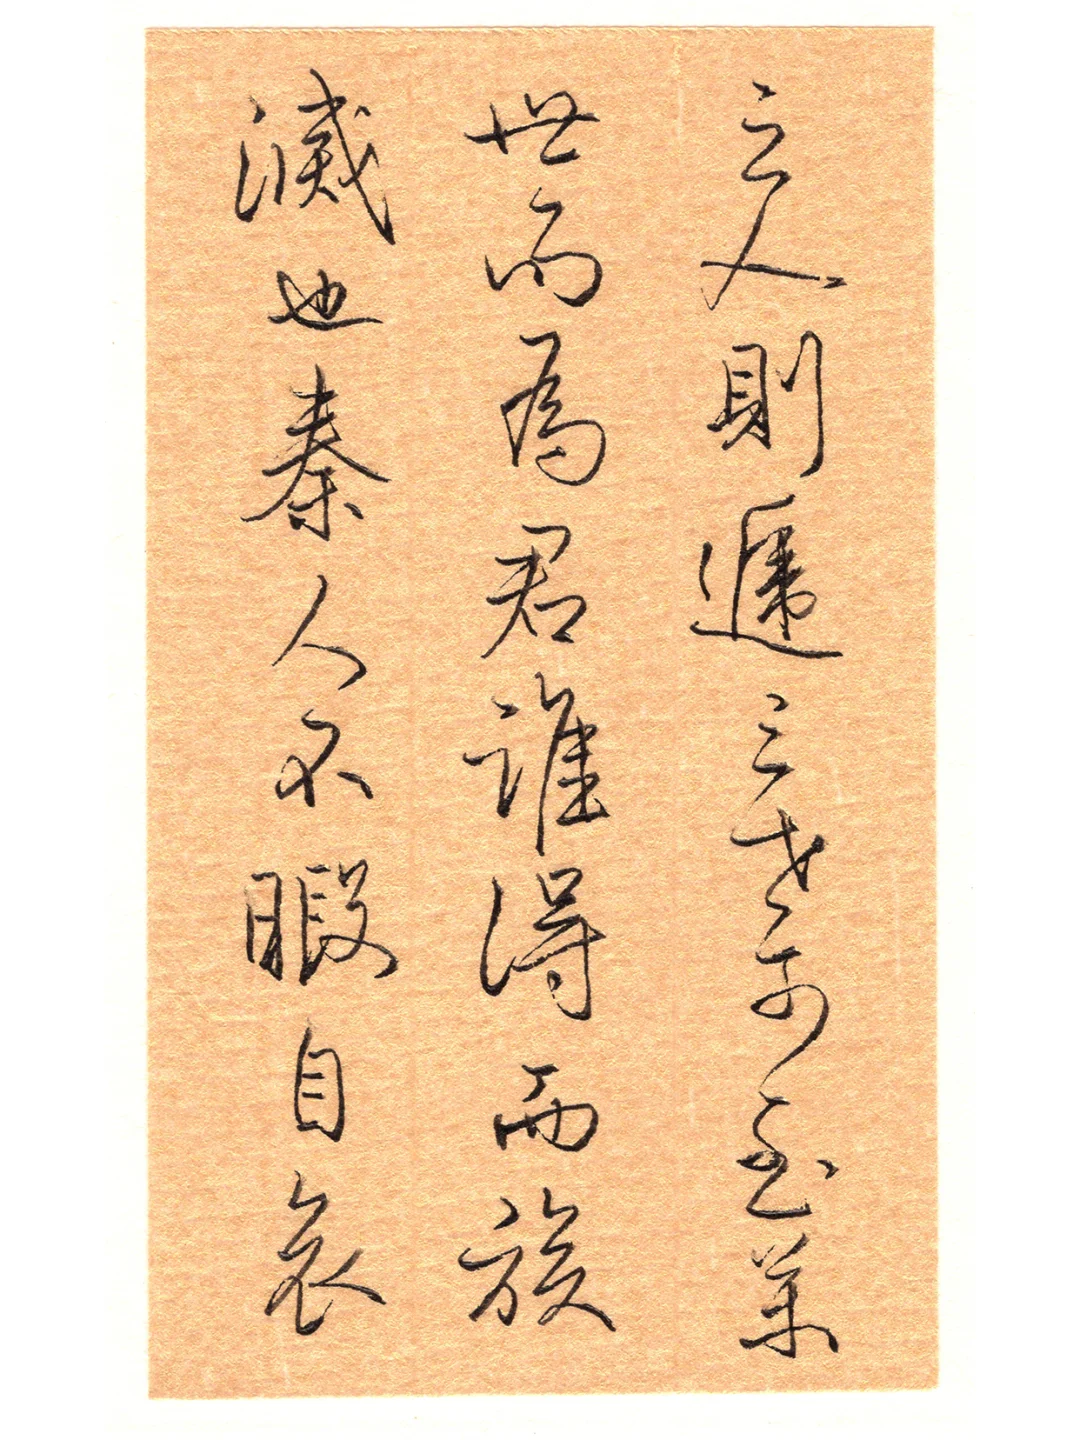 之人則遞三世可至萬
世而為君誰得而族
滅也秦人不暇自哀